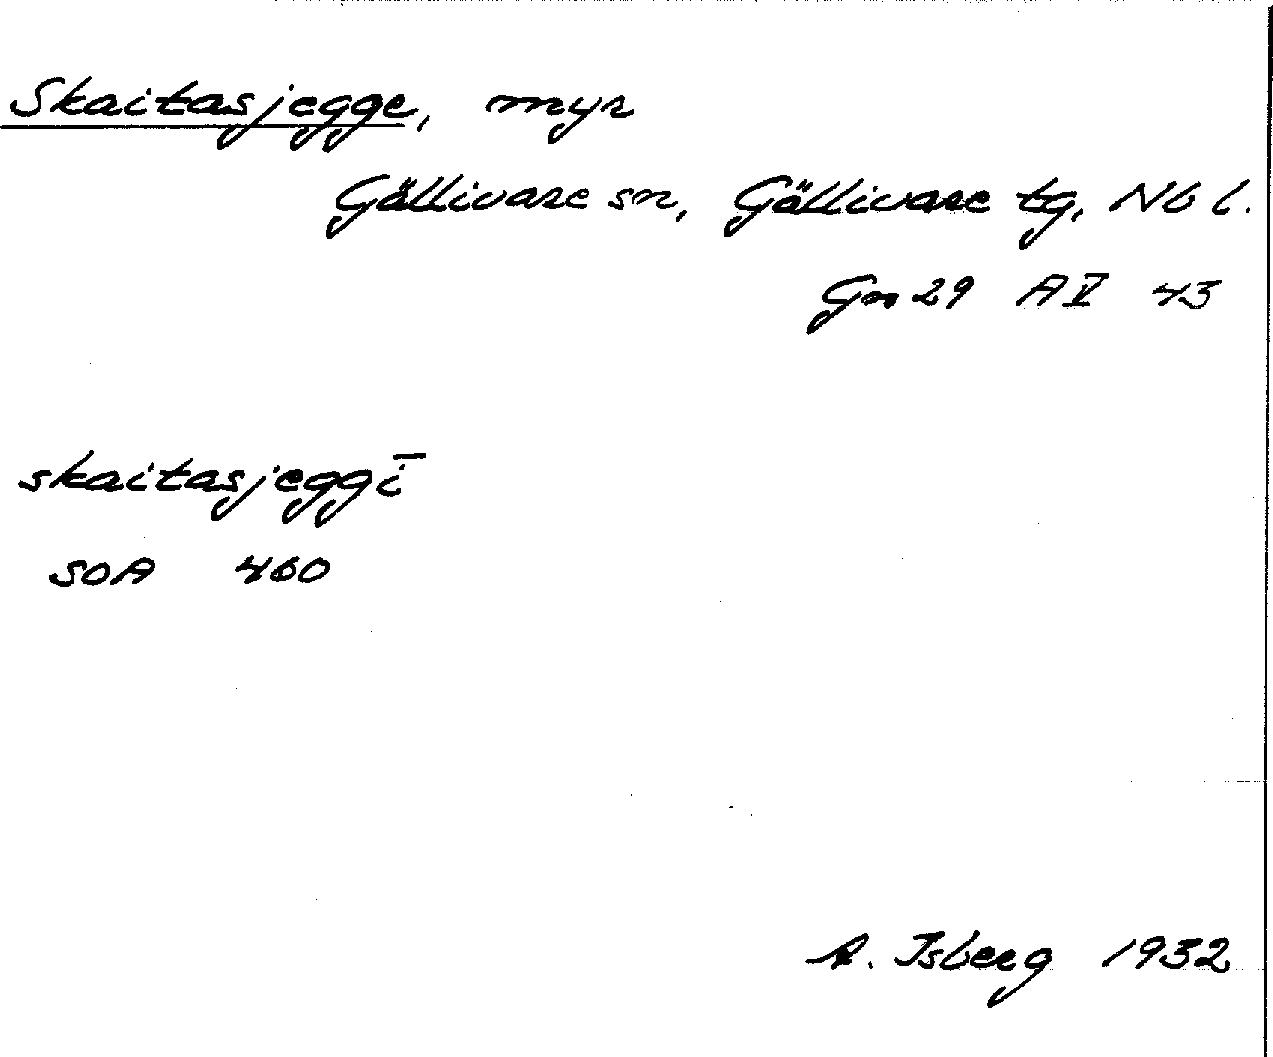 Skaitasjegge, myr
Gällivare sn, Gällivare tg, Nb l.
Gn 29 A V 43
skaitasjeggī
SOA 460
A. Isberg 1932